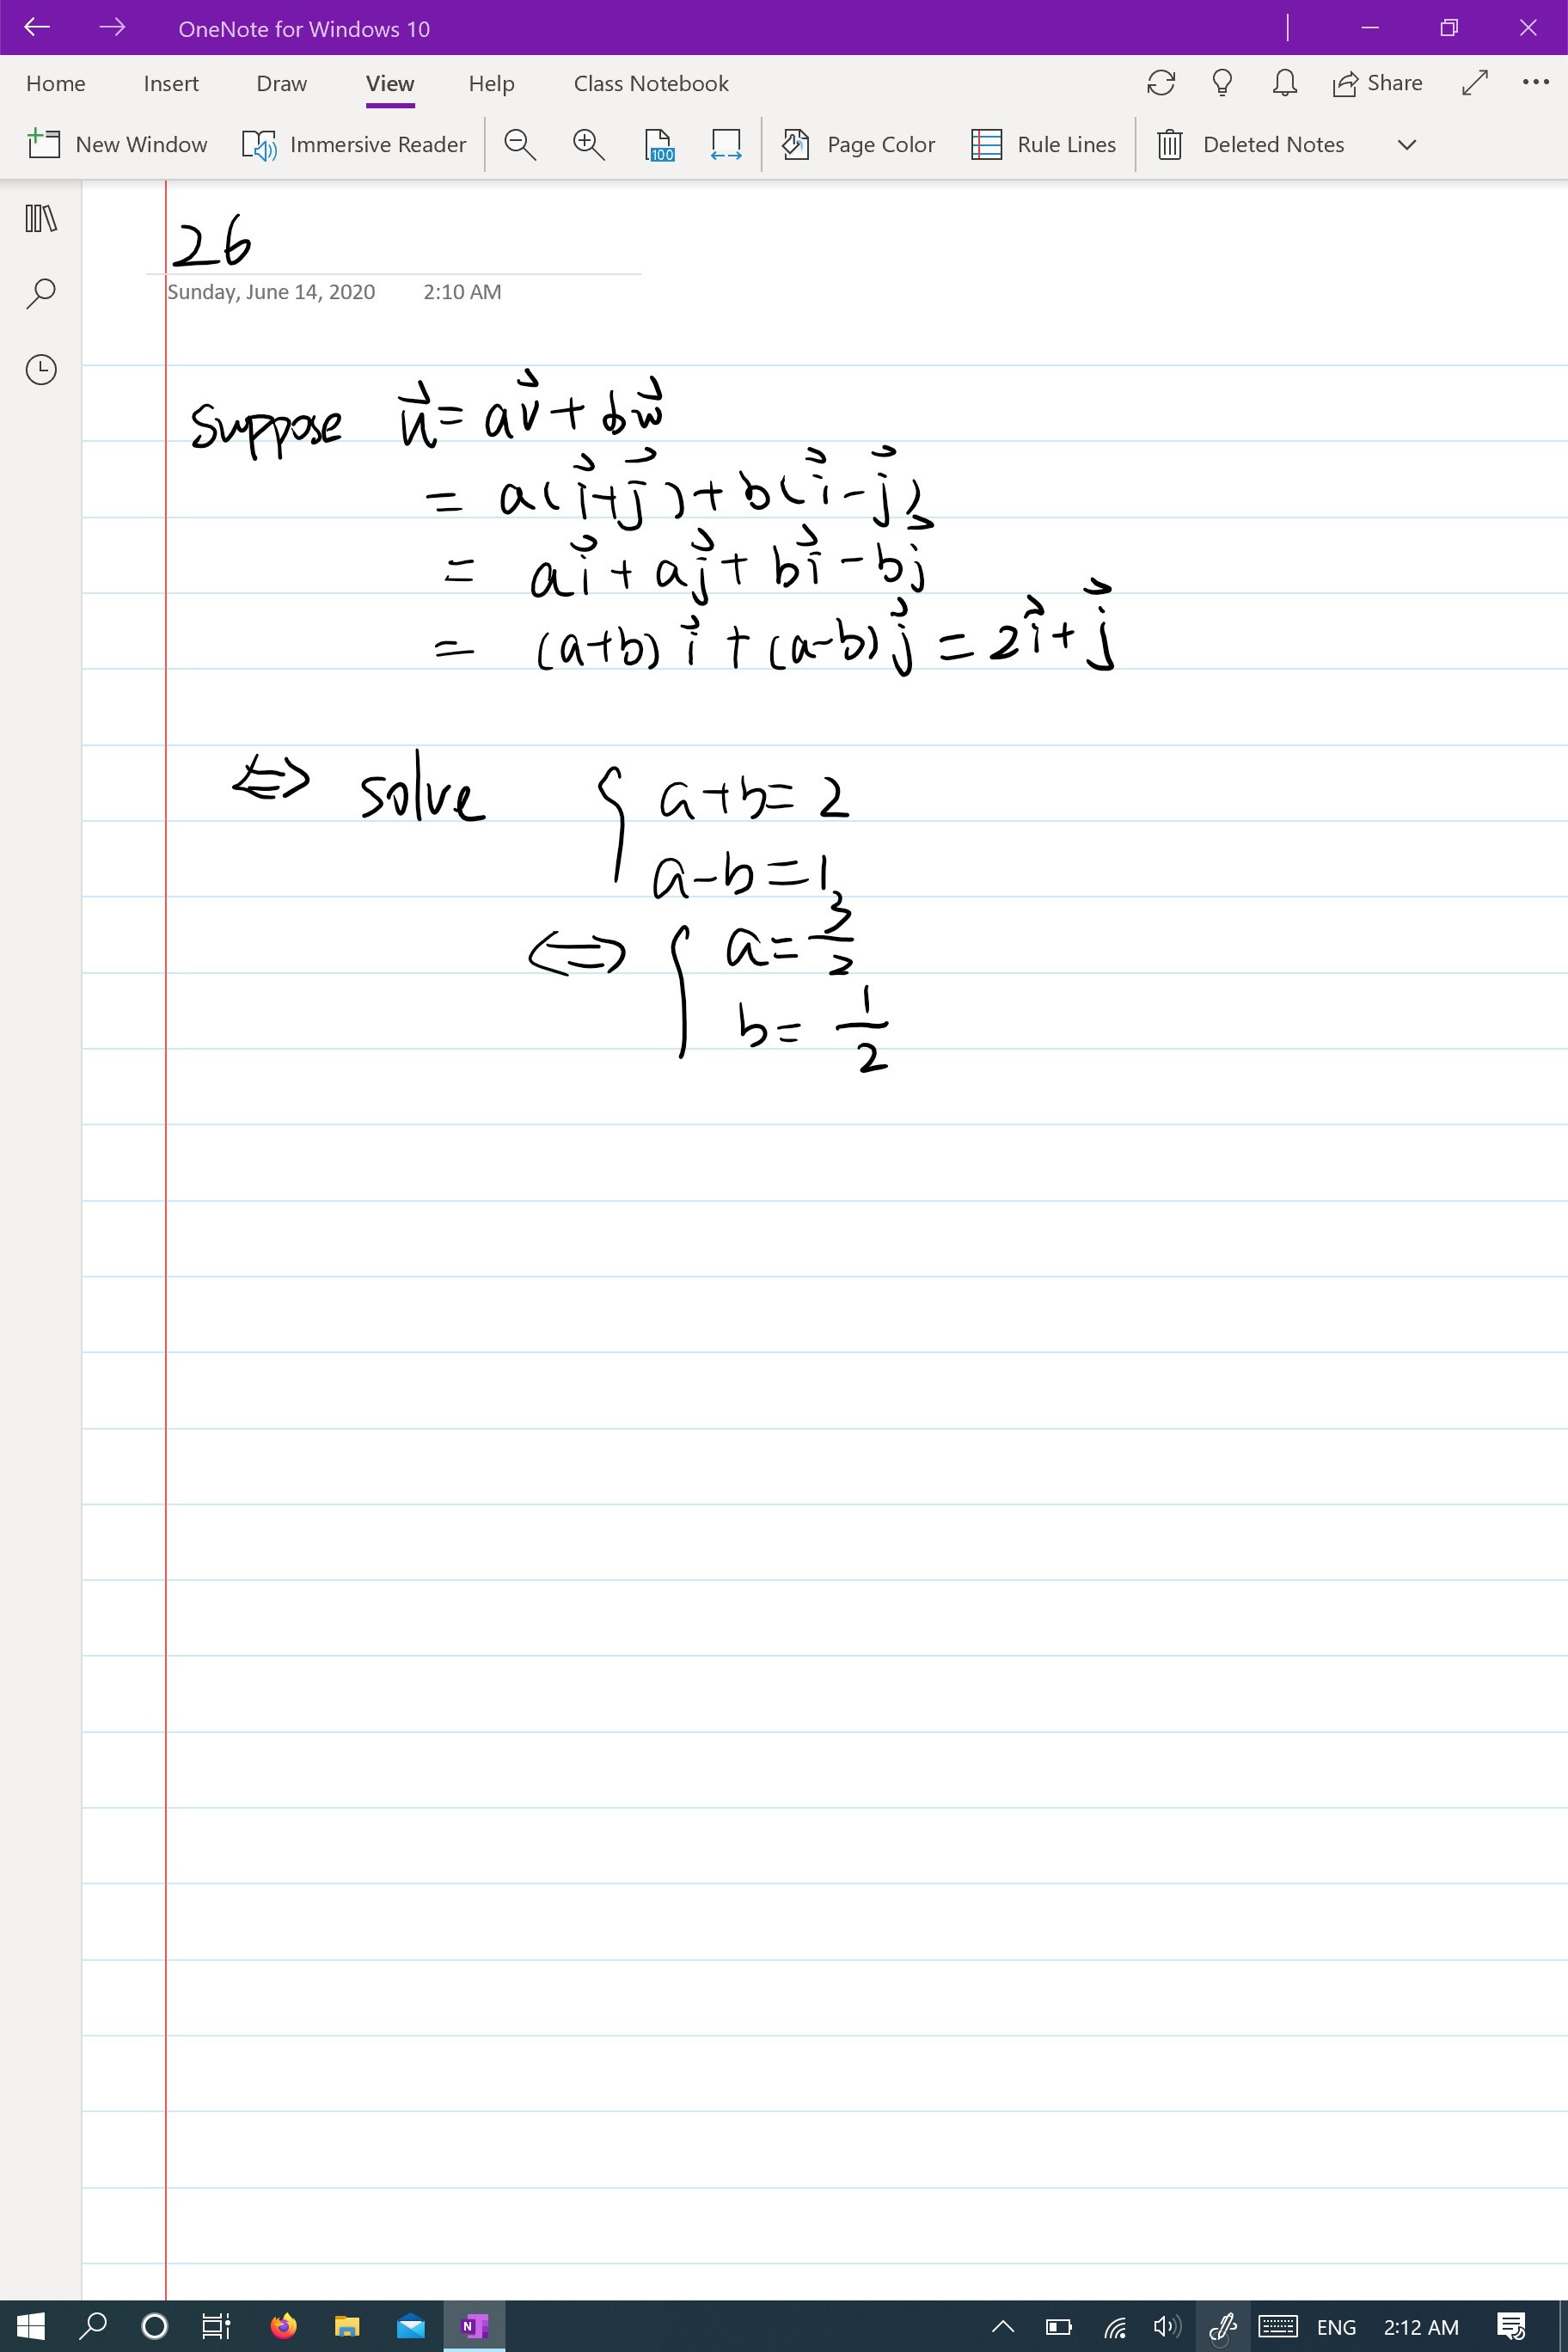 OneNote for Windows 10
Home Insert Draw View Help Class Notebook Share
New Window Immersive Reader 100 Page Color Rule Lines Deleted Notes
26
Sunday, June 14, 2020 2:10 AM
Suppose u⃗ = av⃗ + bw⃗
= a(i⃗+j⃗) + b(i⃗-j⃗)
= ai⃗ + aj⃗ + bi⃗ - bj⃗
= (a+b) i⃗ + (a-b) j⃗ = 2i⃗ + j⃗
⇔ solve { a+b = 2
a-b = 1
⇔ { a = 3/2
b = 1/2
N ENG 2:12 AM